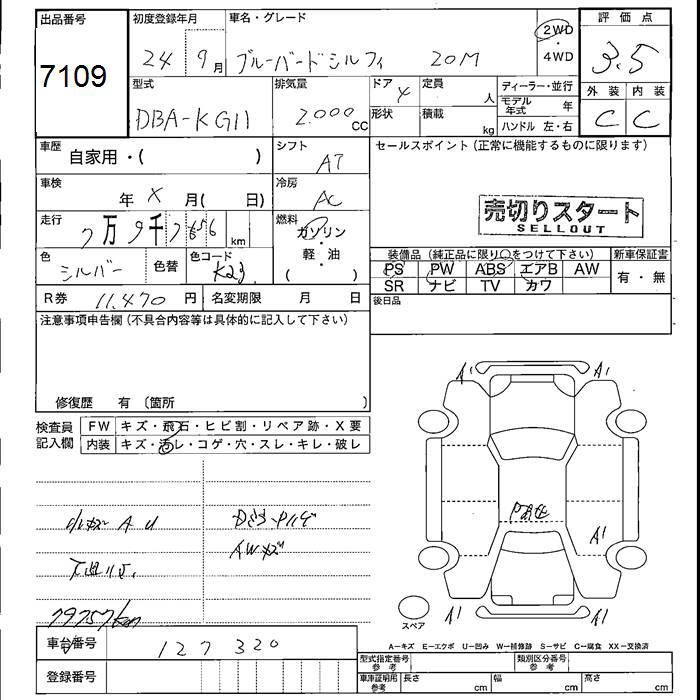 出品番号
7109
初度登録年月
24 9月
車名・グレード
ブルーバードシルフィ 20M
2WD
・
4WD
評価点
3.5
外装 内装
C C
型式
DBA-KG11
排気量
2.000
CC
ドア
4
形状
定員
人
積載
kg
ディーラー・並行
モデル年式 年
ハンドル 左・右
車歴
自家用・( )
シフト
AT
セールスポイント(正常に機能するものに限ります)
車検
年 X 月( 日)
冷房
AC
売切りスタート
SELLOUT
走行
7万9千7656 km
燃料
ガソリン
・
軽・油
( )
色
シルバー
色替
色コード
K23
装備品(純正品に限り○をつけて下さい)
PS PW ABS エアB AW
SR ナビ TV カワ
新車保証書
有・無
R券 11,470 円
名変期限 月 日
後日品
注意事項申告欄(不具合内容等は具体的に記入して下さい)
修復歴 有(箇所 )
検査員
記入欄
FW キズ・飛石・ヒビ割・リペア跡・X要
内装 キズ・汚レ・コゲ・穴・スレ・キレ・破レ
A U
AWキズ
79757km
A1
A1
A1
A1
A1
スペア
A-キズ E-エクボ U-凹み W-補修跡 S-サビ C-腐食 XX-交換済
車台番号
127320
登録番号
型式指定番号
参考
類別区分番号
参考
車庫証明用
参考
長さ cm
幅 cm
高さ cm